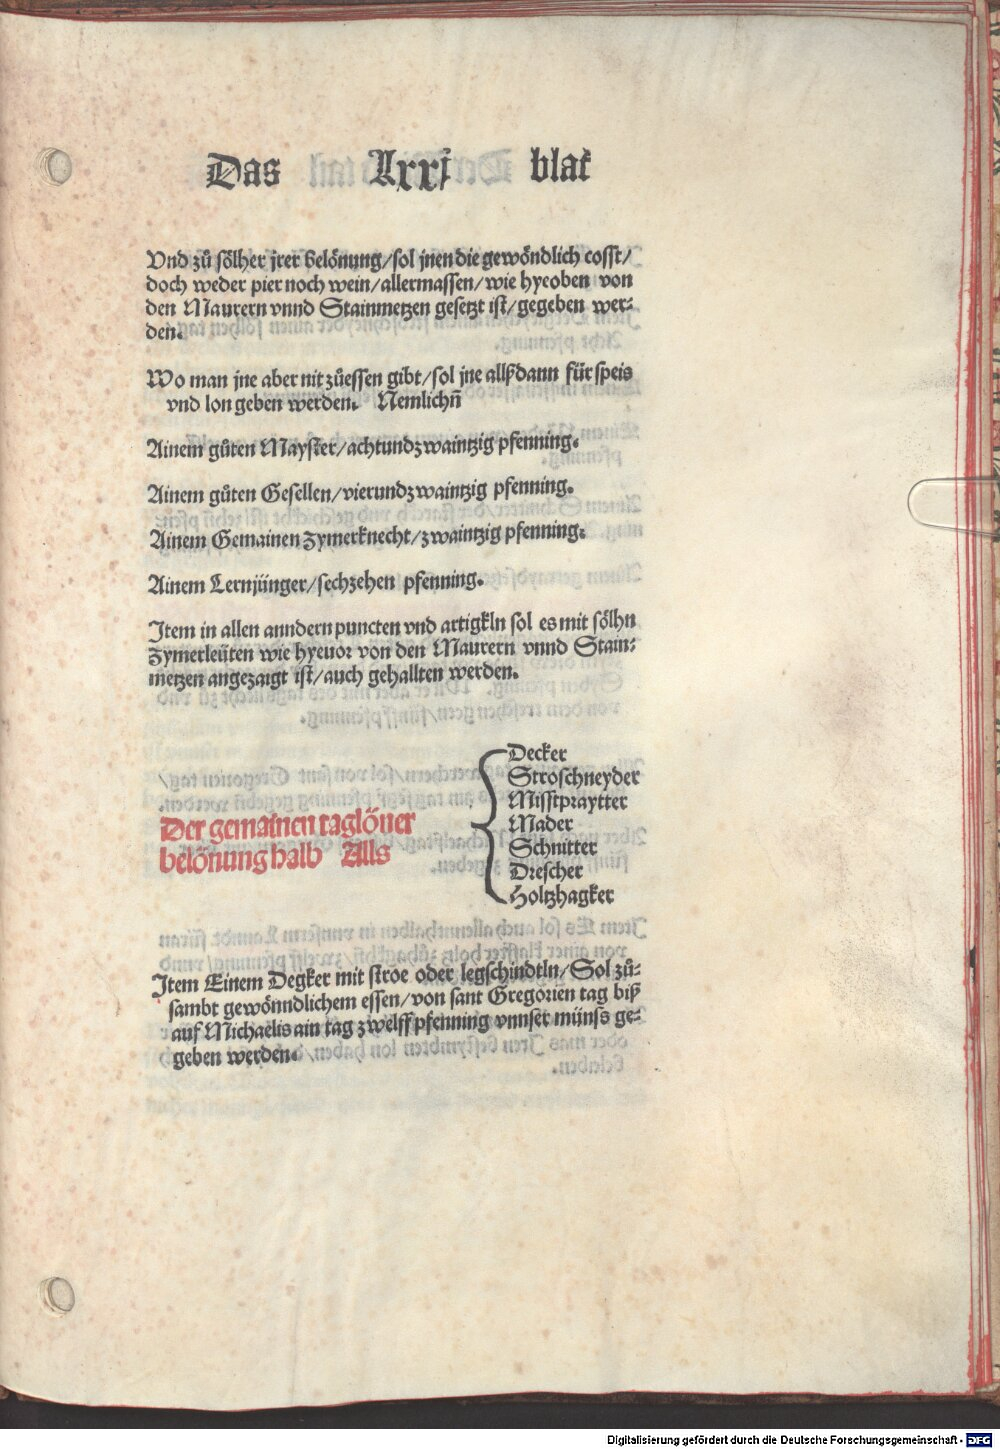 Das Lxxj blat
Vnd zů sölher jrer belönung/sol jnen die gewöndlich cosst/
doch weder pier noch wein/allermassen/wie hyeoben von
den Maurern vnnd Stainmetzen gesetzt ist/gegeben wer-
den.
Wo man jne aber nit zůessen gibt/sol jne allßdann für speis
vnd lon geben werden. Nemlichn̄
Ainem gůten Mayster/achtundzwaintzig pfenning.
Ainem gůten Gesellen/vierundzwaintzig pfenning.
Ainem Gemainen Zymerknecht/zwaintzig pfenning.
Ainem Lernjünger/sechzehen pfenning.
Item in allen anndern puncten vnd artigkln sol es mit sölhn
Zymerleüten wie hyeuor von den Maurern vnnd Stain-
metzen angezaigt ist/auch gehallten werden.
Der gemainen taglöner
belönung halb Alls
Decker
Stroschneyder
Misstpraytter
Mader
Schnitter
Drescher
Holtzhagker
Item Einem Degker mit stroe oder legschindtln/Sol zů-
sambt gewönndlichem essen/von sant Gregorien tag biß
auf Michaelis ain tag zwelff pfenning vnnser münss ge-
geben werden.
Digitalisierung gefördert durch die Deutsche Forschungsgemeinschaft - DFG